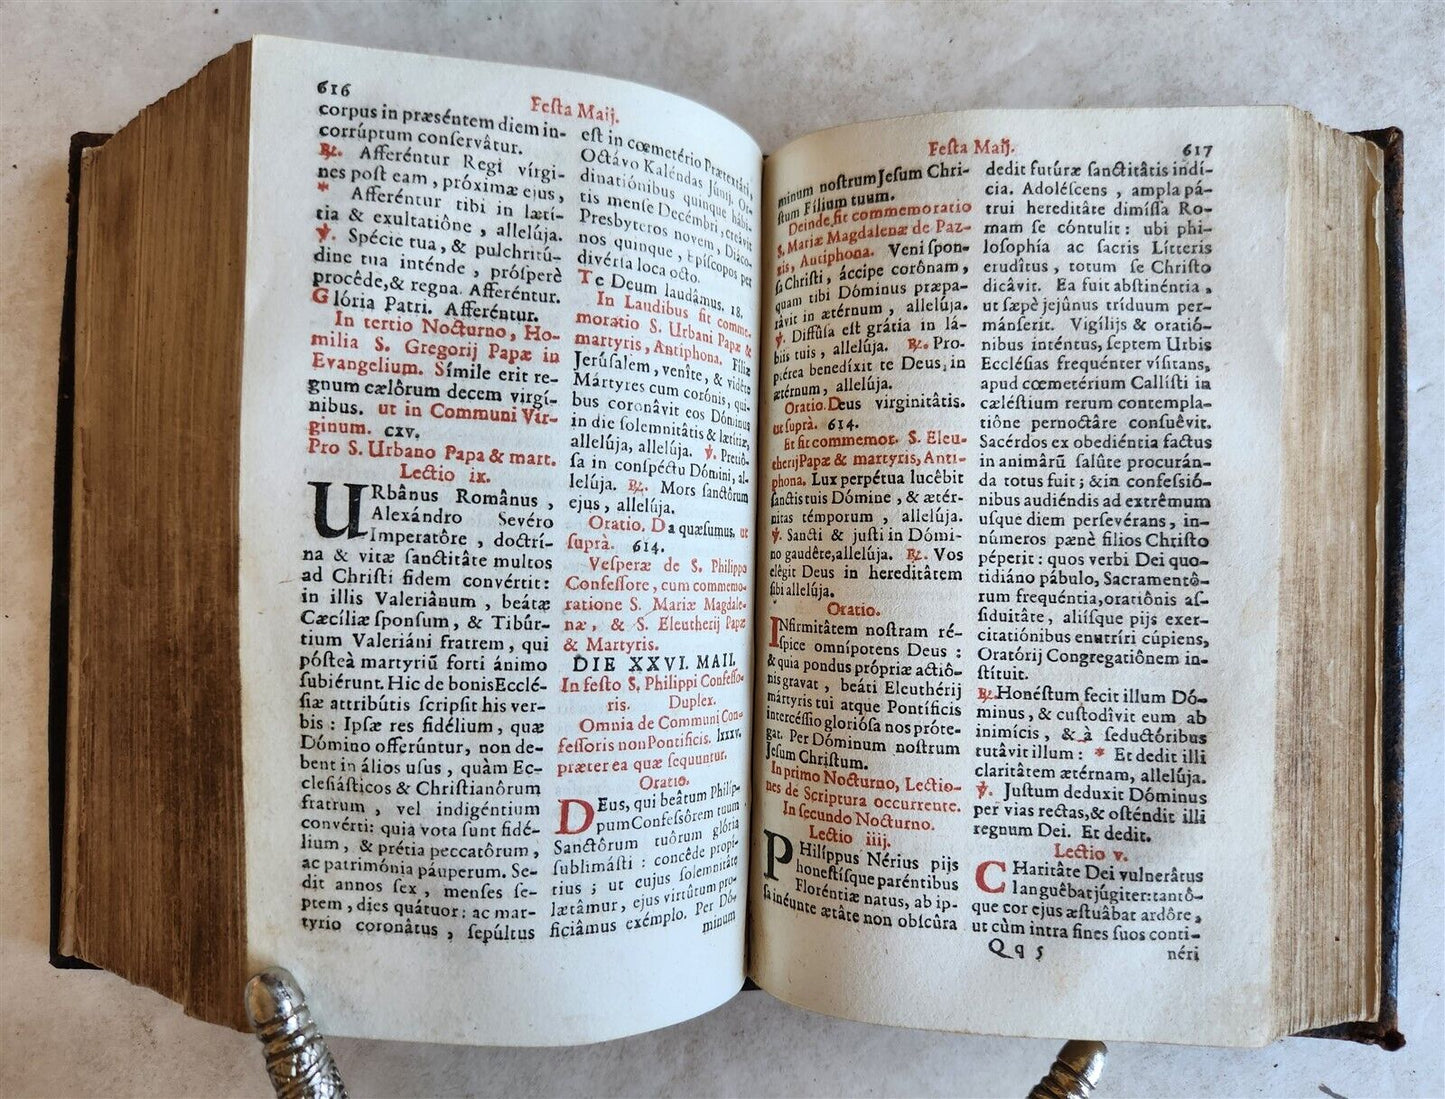 616
Feſta Maij.
corpus in præséntem diem in-
corrúptum conſervâtur.
℟. Afferéntur Regi vírgi-
nes poſt eam, próximæ ejus,
* Afferéntur tibi in lætí-
tia & exultatiône, allelúja.
℣. Spécie tua, & pulchritú-
dine tua inténde, próſperè
procêde, & regna. Afferéntur.
Glória Patri. Afferéntur.
In tertio Nocturno, Ho-
milia S. Gregorij Papæ in
Evangelium. Símile erit re-
gnum cælôrum decem virgí-
nibus. ut in Communi Vir-
ginum. cxv.
Pro S. Urbano Papa & mart.
Lectio ix.
URbânus Românus,
Alexándro Sevéro
Imperatôre, doctrí-
na & vitæ ſanctitâte multos
ad Chriſti fidem convértit:
in illis Valeriânum, beátæ
Cæcíliæ ſponſum, & Tibúr-
tium Valeriáni fratrem, qui
póſteà martyriū forti ánimo
ſubiérunt. Hic de bonis Ecclé-
ſiæ attribútis ſcripſit his ver-
bis: Ipſæ res fidélium, quæ
Dómino offerúntur, non de-
bent in álios uſus, quàm Ec-
cleſiáſticos & Chriſtianôrum
fratrum, vel indigéntium
convérti: quia vota ſunt fidé-
lium, & prétia peccatôrum,
ac patrimónia páuperum. Se-
dit annos ſex, menſes ſe-
ptem, dies quátuor: ac mar-
tyrio coronâtus, ſepúltus
eſt in cœmetério Prætextáti,
Octávo Kaléndas Júnij. Or-
dinatiónibus quinque hábi-
tis menſe Decémbri, creávit
Presbyteros novem, Diáco-
nos quinque, Epíſcopos per
divérſa loca octo.
Te Deum laudâmus. 18.
In Laudibus fit comme-
moratio S. Urbani Papæ &
martyris, Antiphona. Fíliæ
Jerúſalem, venîte, & vidête
Mártyres cum corónis, qui-
bus coronâvit eos Dóminus
in die ſolemnitâtis & lætítiæ,
allelúja, allelúja. ℣. Pretió-
ſa in conſpéctu Dómini, al-
lelúja. ℟. Mors ſanctôrum
ejus, allelúja.
Oratio. Da quæſumus. ut
ſuprà. 614.
Veſperæ de S. Philippo
Confeſſore, cum commemo-
ratione S. Mariæ Magdale-
næ, & S. Eleutherij Papæ
& Martyris.
DIE XXVI. MAII.
In feſto S. Philippi Confeſſo-
ris. Duplex.
Omnia de Communi Con-
feſſoris non Pontificis. lxxxv.
præter ea quæ ſequuntur.
Oratio.
DEus, qui beâtum Philíp-
pum Confeſſôrem tuum,
Sanctórum tuôrum glória
ſublimáſti: concêde propí-
tius; ut cujus ſolemnitâte
lætâmur, ejus virtûtum pro-
ficiâmus exémplo. Per Dó-
minum
Feſta Maij.
617
minum noſtrum Jeſum Chri-
ſtum Fílium tuum.
Deinde fit commemoratio
S. Mariæ Magdalenæ de Paz-
zis, Antiphona. Veni ſpon-
ſa Chriſti, áccipe corônam,
quam tibi Dóminus præpa-
râvit in ætérnum, allelúja.
℣. Diffúſa eſt grátia in lá-
biis tuis, allelúja. ℟. Pro-
ptérea benedíxit te Deus in
ætérnum, allelúja.
Oratio. Deus virginitâtis.
ut ſuprà. 614.
Et fit commemor. S. Eleu-
therij Papæ & martyris, Anti-
phona. Lux perpétua lucêbit
ſanctis tuis Dómine, & ætér-
nitas témporum, allelúja.
℣. Sancti & juſti in Dómi-
no gaudête, allelúja. ℟. Vos
elêgit Deus in hereditâtem
ſibi allelúja.
Oratio.
INfirmitâtem noſtram ré-
ſpice omnípotens Deus:
& quia pondus própriæ actiô-
nis gravat, beáti Eleuthérij
mártyris tui atque Pontíficis
intercéſſio glorióſa nos próte-
gat. Per Dóminum noſtrum
Jeſum Chriſtum.
In primo Nocturno, Lectio-
nes de Scriptura occurrente.
In ſecundo Nocturno.
Lectio iiij.
PHilíppus Nérius pijs
honeſtíſque paréntibus
Floréntiæ natus, ab ip-
ſa ineúnte ætâte non obſcûra
dedit futúræ ſanctitâtis indí-
cia. Adoléſcens, ampla pá-
trui hereditâte dimíſſa Ro-
mam ſe cóntulit: ubi phi-
loſophía ac ſacris Lítteris
erudîtus, totum ſe Chriſto
dicâvit. Ea fuit abſtinéntia,
ut ſæpè jejûnus tríduum per-
mánſerit. Vigílijs & oratió-
nibus inténtus, ſeptem Urbis
Eccléſias frequénter víſitans,
apud cœmetérium Callíſti in
cæléſtium rerum contempla-
tiône pernoctâre conſuêvit.
Sacérdos ex obediéntia factus
in animârū ſalûte procurán-
da totus fuit; & in confeſſió-
nibus audiéndis ad extrêmum
uſque diem perſevérans, in-
números pænè fílios Chriſto
péperit: quos verbi Dei quo-
tidiâno pábulo, Sacramentô-
rum frequéntia, oratiônis aſ-
ſiduitâte, aliíſque pijs exer-
citatiónibus enutríri cúpiens,
Oratórij Congregatiônem in-
ſtítuit.
℟. Honéſtum fecit illum Dó-
minus, & cuſtodívit eum ab
inimícis, & à ſeductóribus
tutâvit illum: * Et dedit illi
claritâtem ætérnam, allelúja.
℣. Juſtum deduxit Dóminus
per vias rectas, & oſténdit illi
regnum Dei. Et dedit.
Lectio v.
CHaritâte Dei vulnerâtus
languêbat júgiter: tantô-
que cor ejus æſtuâbat ardôre,
ut cùm intra fines ſuos conti-
Qq 5
néri